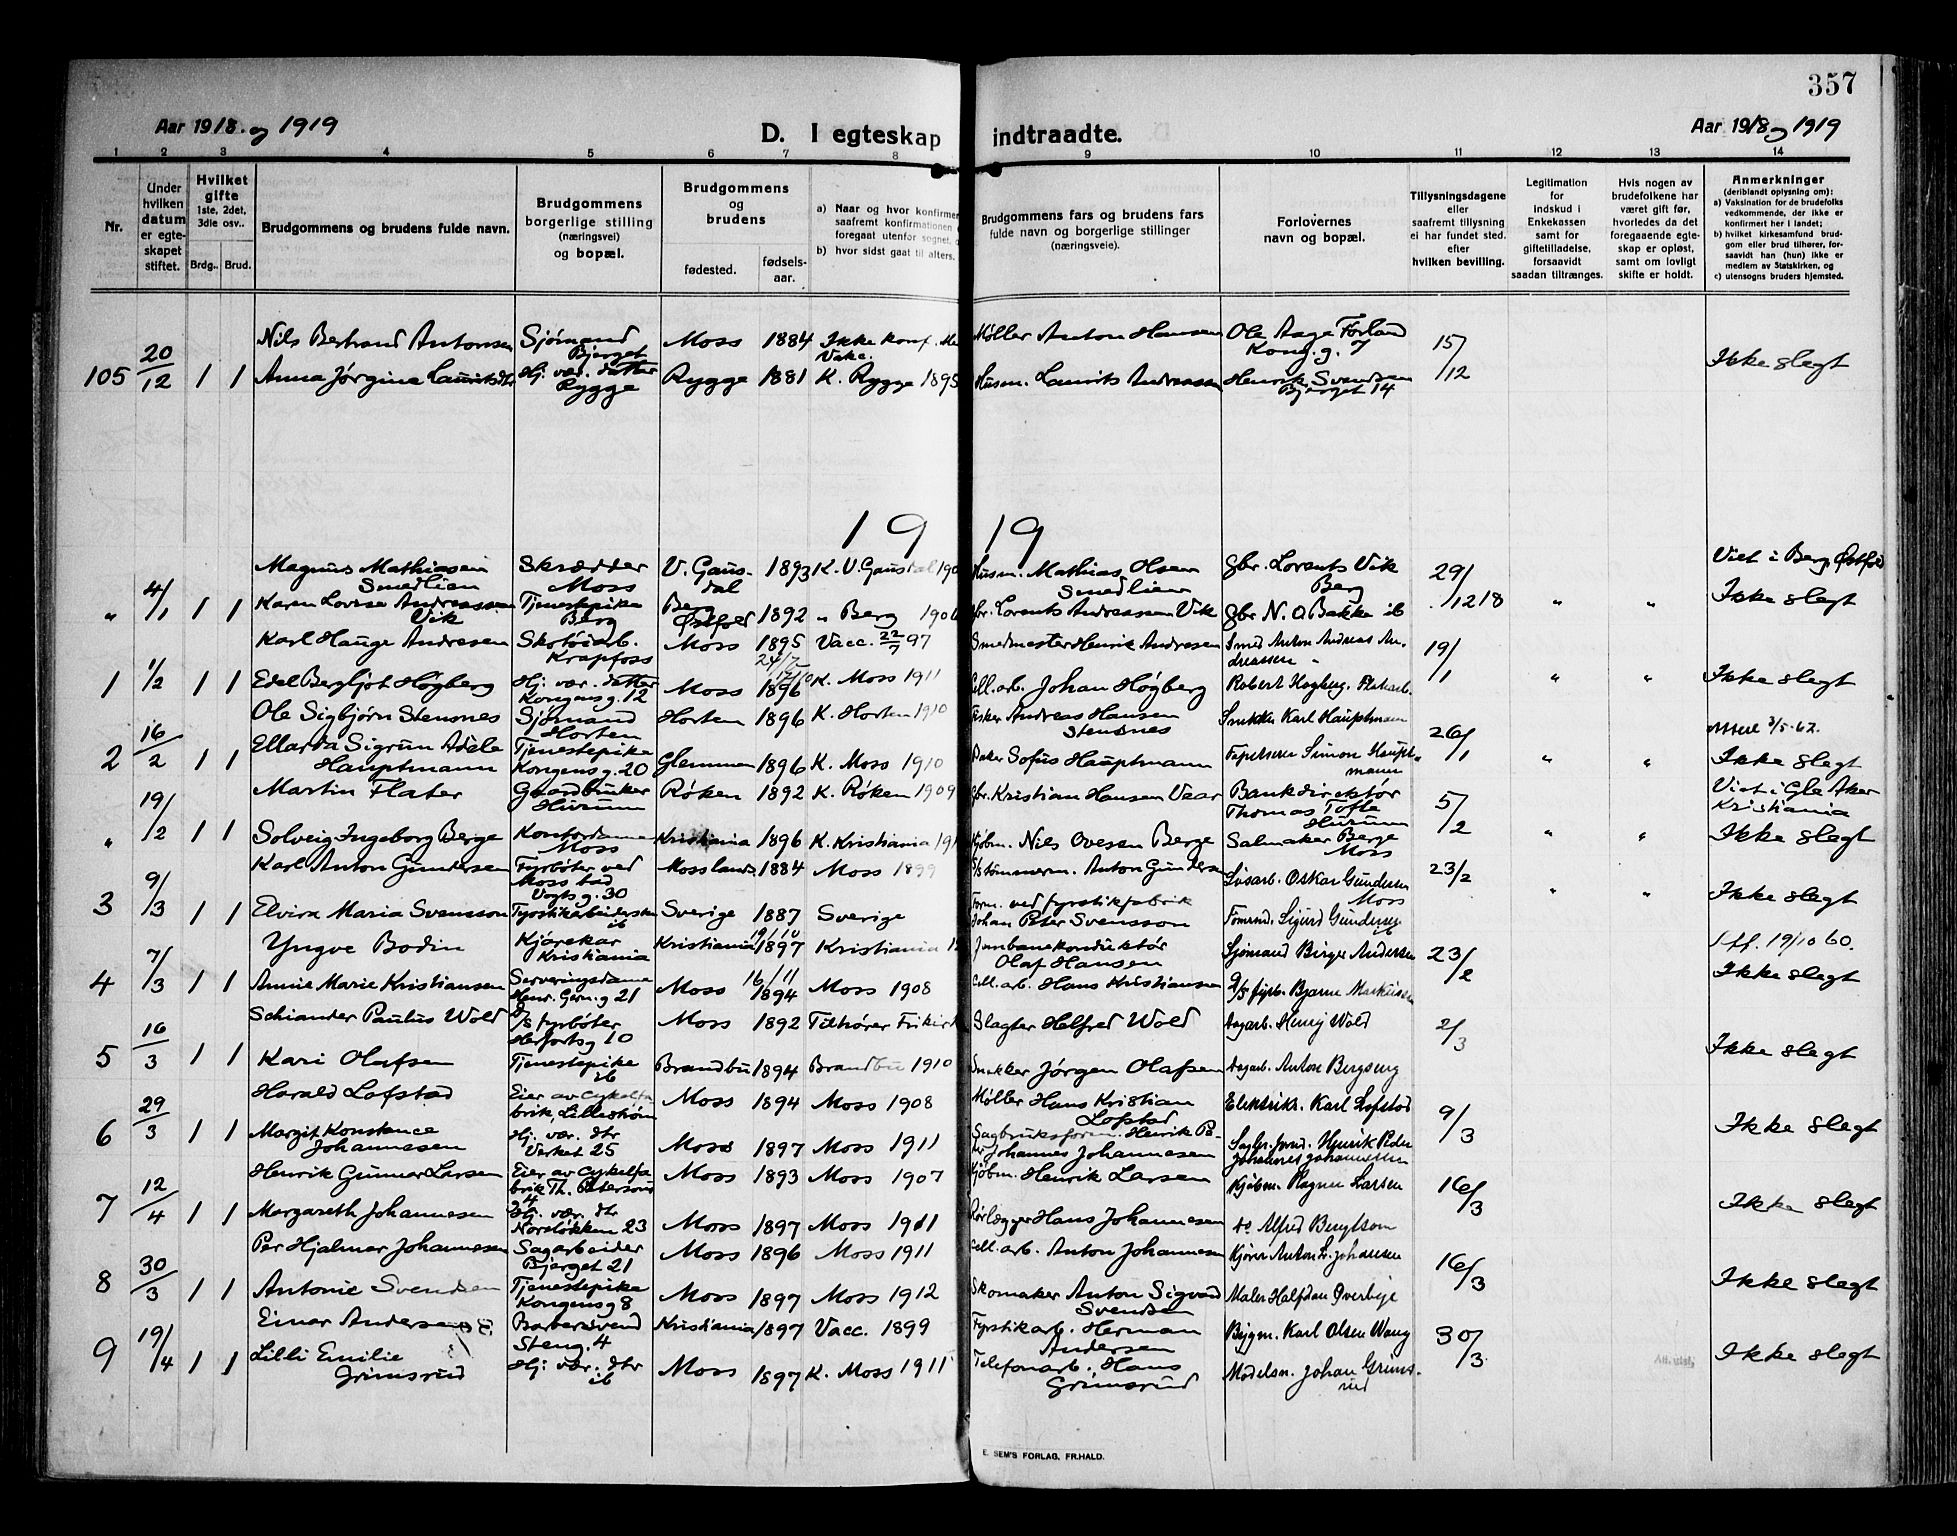 357
Aar 1918 og 1919
D. I egteskap indtraadte.
Aar 1918 og 1919
1 2 3 4 5 6 7 8 9 10 11 12 13 14
Nr.
Under hvilken datum er egteskapet stiftet.
Hvilket gifte 1ste, 2det, 3die osv..
Brdg.. Brud.
Brudgommens og brudens fulde navn.
Brudgommens borgerlige stilling (næringsvei) og bopæl.
Brudgommens og brudens
fødested.
fødsels-aar.
a) Naar og hvor konfirmer
saafremt konfirmationen
foregaat utenfor sognet,
b) hvor sidst gaat til alters.
Brudgommens fars og brudens fars fulde navn og borgerlige stillinger (næringsveie).
Forlovernes navn og bopæl.
Tillysningsdagene eller saafremt tillysning ei har fundet sted. efter hvilken bevilling.
Legitimation for Indskud i Enkekassen samt for giftetilladelse, forsaavidt saadan tiltrænges.
Hvis nogen av brudefolkene har været gift før, hvorledes da det foregaaende egteskap er opløst, samt om lovligt skifte er holdt.
Anmerkninger
(deriblandt oplysning om):
a) Vaksination for de brudefolks vedkommende, der ikke er konfirmert her i landet;
b) hvilket kirkesamfund brudgom eller brud tilhører, forsaavidt han (hun) ikke er medlem av Statskirken, og
c) utensogns bruders hjemsted.
Nils Bertrand Antonsen Sjømand Bjerget Moss 1884 Ikke konf. Vakc. Møller Anton Hansen Ole Aage Forland Kong. g. 7 15/12
105 20/12 1 1 Anna Jørgine Lauritsdtr Hj. vær. datter Rygge Rygge 1881 K. Rygge 1895 Husm. Laurits Andreassen Henrik Svendsen Bjerget 14 Ikke slegt
1919
Magnus Mathiasen Smedlien Skrædder Moss V. Gausdal 1893 K. V. Gausdal Husm. Mathias Olsen Smedlien Gbr. Lorents Vik Berg 29/12 18 Viet i Berg, Østfold
" 4/1 1 1 Karen Lovise Andreassen Vik Tjenestepike Berg Berg Østfold 1892 " Berg Gbr. Lorents Andreassen Vik Gbr N. O Bakke ib " " Ikke slegt
Karl Hauge Andresen Skotøiarb. Krapfoss Moss 1895 24/7 Vacc. 22/7 97 Smedmester Henrik Andresen Smed Anton Andreas Andreassen 19/1
1 1/2 1 1 Edel Bergljot Høgberg Hj. vær. datter Kongensg. 12 Moss 1896 K. Moss 1911 Cell. arb. Johan Høgberg Robert Høgberg. " " Ikke slegt
Ole Sigbjørn Stensnes Sjømand Horten Horten 1896 K. Horten 1910 Fisker Andreas Hansen Stensnes Snekker Karl Hauptmann 26/1 3/5-62.
2 16/2 1 1 Ellarda Sigrun Adele Hauptmann Tjenestepike Kongensg. 20 Glemmen 1896 K. Moss 1910 Sofus Hauptmann Simon Hauptmann " " Ikke slegt
Martin Flater Gaardbruker Hurum Røken 1892 K. Røken 1909 Gbr. Kristian Hansen Vear Bankdirektør Thomas Tofte Hurum 5/2 Viet i Gla Aker Kristiania
" 19/2 1 1 Solveig Ingeborg Berge Kontordame Moss Kristiania 1896 K. Kristiania Kjøbm. Nils Ovesen Berge Salmaker Berge Moss " " Ikke slegt
Karl Anton Gundersen Fyrbøter ved Moss bad Vogts g. 30 Mosslands. 1884 Moss 1899 Tømmerm. Anton Gundersen Løsarb. Oskar Gundersen Moss 23/2
3 9/3 1 1 Elvira Maria Svensson Fyrstikarbeiderske ib Sverige 1887 Sverige Form. ved fyrstikfabrik Johan Peter Svensson Formand. Sigurd Gundersen " " Ikke slegt
Yngve Bodin Kjørekar Kristiania Kristiania 19/10 1897 Kristiania Jernbanekonduktør Olaf Hansen Sjømand Birger Andersen 23/2 19/10 60.
4 7/3 1 1 Annie Marie Kristiansen Serveringsdame Henr. Gern. g 21 Moss 16/11 1894 Moss 1908 Cell. arb. Hans Kristiansen D/S fyrb. Bjarne Ikke slegt
Schiander Paulus Wold D/S fyrbøter Herfortsg 10 Moss 1892 Tilhører Frikirk Slagter Helfred Wold Sagarb. Henry Wold 2/3
5 16/3 1 1 Kari Olafsen Tjenestepike ib Brandbu 1894 Brandbu 1910 Snekker Jørgen Olafsen Sagarb. Anton Bergseng Ikke slegt
Harald Lofstad Eier av Cykelfabrik, Lillestrøm Moss 1894 Moss 1908 Møller Hans Kristian Lofstad Elektrikr. Karl Lofstad 9/3
6 29/3 1 1 Margit Konstance Johannesen Hj. vær. dtr Verket 25 Moss 1897 Moss 1911 Sagbruksform. Henrik Peder Johannes Johannesen Sagbr. form. Henrik Peder Johannes Johannessen Ikke slegt
Henrik Gunner Larsen Eier av Cykelfabrik Th. Petersons g 4 Moss 1893 Moss 1907 Kjøbm. Henrik Larsen Kjøbm. Ragnar Larsen 16/3
7 12/4 1 1 Margareth Johannesen Hj. vær. dtr Noreløkken 23 Moss 1897 Moss 1911 Rørlægger Hans Johannesen Do Alfred Bengtson Ikke slegt
Per Hjalmar Johannesen Sagarbeider Bjerget 21 Moss 1896 Moss 1911 Cell. arb. Anton Johannesen Kjører Anton L. Johansen 16/3
8 30/3 1 1 Antonie Svendsen Tjenestepike Kongensg 8 Moss 1897 Moss 1912 Skomaker Anton Sigvard Svendsen Maler Halfdan Øverbye Ikke slegt
Einar Andersen Barbersvend Steng. 4 Kristiania 1897 Vacc. 1899 Fyrstikarb. Herman Andersen Bygm. Karl Olsen Wang 30/3
9 19/4 1 1 Lilli Emilie Grimsrud Hj. vær. dtr ib Moss 1897 K. Moss 1911 Telefonarb. Hans Grimsrud Modelsn. Johan Grimsrud Att. utst. Ikke slegt
E. SEM'S FORLAG, FR.HALD.